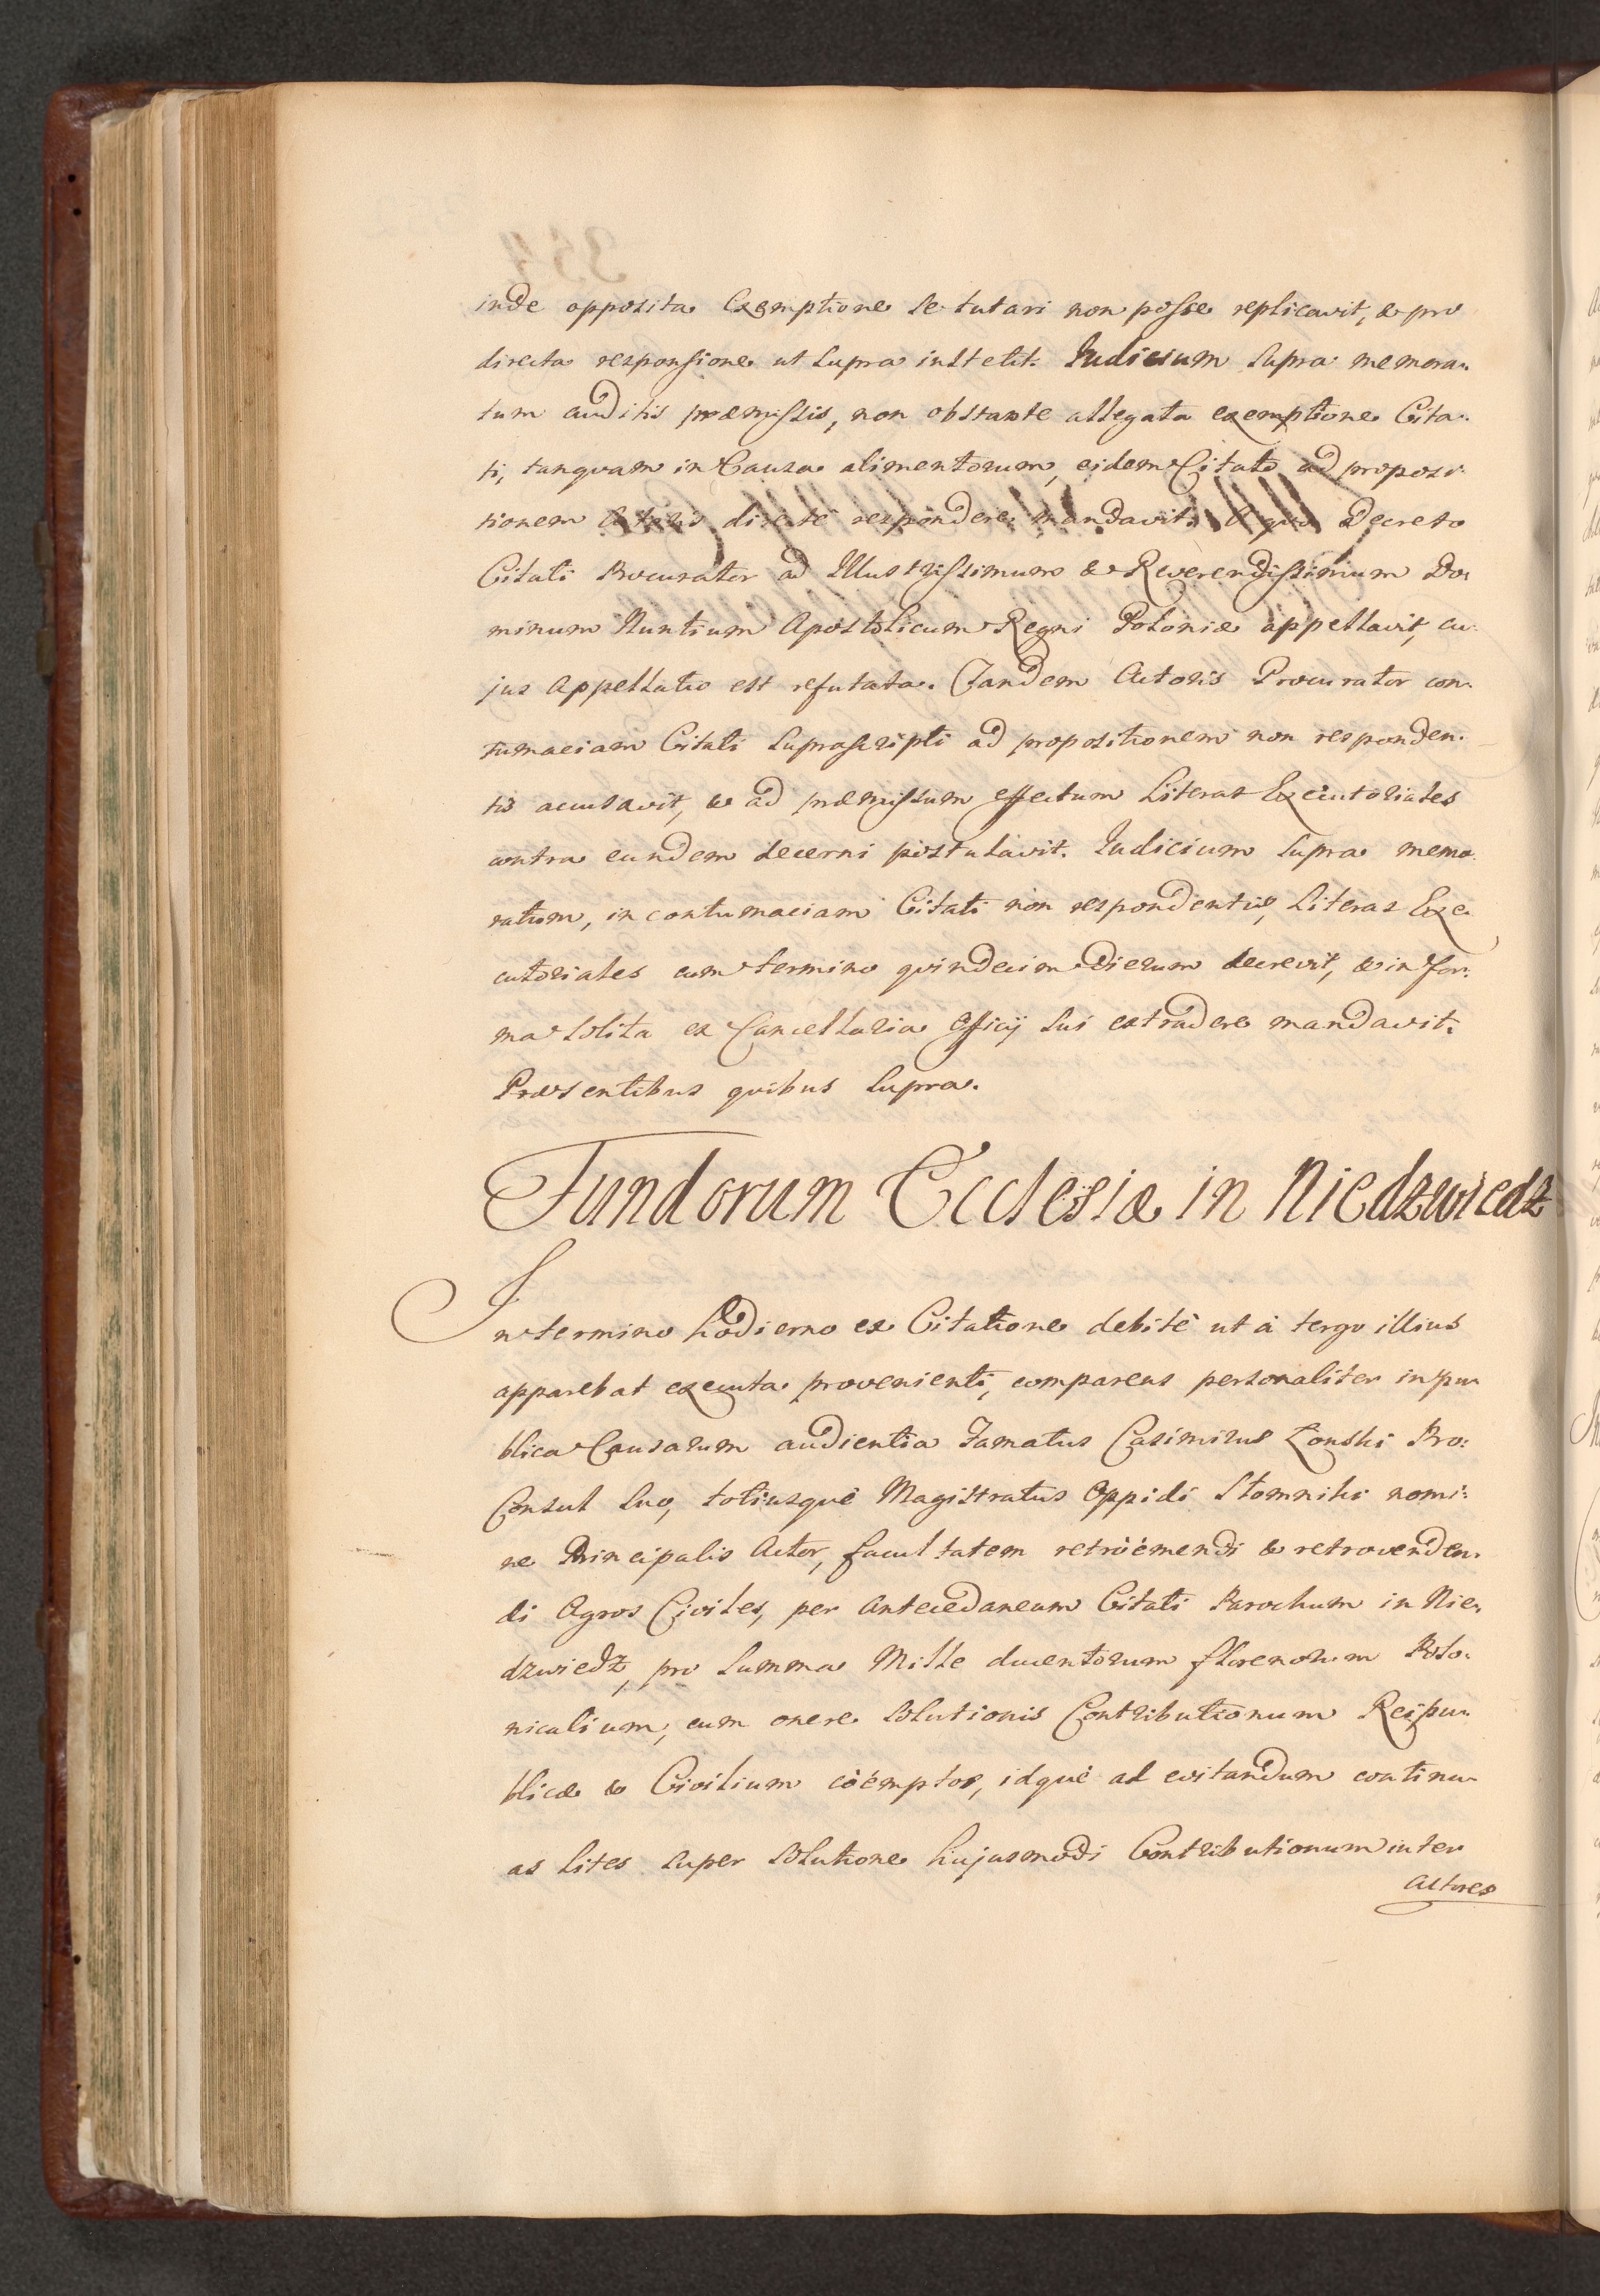 inde opposita Exemptione se tutari non posse replicavit, & pro
directa responsione ut supra institit. Iudicium supra memora-
tum auditis præmissis, non obstante allegata exemptione Cita-
ti, tanquam in Causa alimentorum, eidem Citato ad proposi-
tionem Actoris directé respondere mandavit. A quo Decreto
Citati Procurator ad Illustrissimum & Reverendissimum Do-
minum Nuntium Apostolicum Regni Poloniæ appellavit, cu-
jus Appellatio est refutata. Tandem Actoris Procurator con-
tumaciam Citati suprascripti ad propositionem non responden-
tis accusavit, & ad præmissum effectum Literas Executoriales
contra eundem decerni postulavit. Iudicium supra memo-
ratum, in contumaciam Citati non respondentis, Literas Exe-
cutoriales cum termino quindecim dierum decrevit, & in for-
ma solita ex Cancellaria Officij sui extradere mandavit.
Præsentibus quibus supra.
Fundorum Ecclesiæ in Niedzwiedz
In termino hodierno ex Citatione debité ut á tergo illius
apparebat executa provenienti, comparens personaliter in pu-
blica Causarum audientia Famatus Casimirus Łonski Pro-
Consul suo, totiusqué Magistratus Oppidi Słomniki nomi-
ne Principalis Actor, facultatem retróémendi & retrovenden-
di Agros Civiles, per Antecedaneum Citati Parochum in Nie-
dzwiedz, pro summa Mille ducentorum florenorum Polo-
nicalium, cum onere solutionis Contributionum Reipu-
blicæ & Civilium cöémptos, idqué ad evitandum continu-
as lites super solutione hujusmodi Contributionum inter
Actores